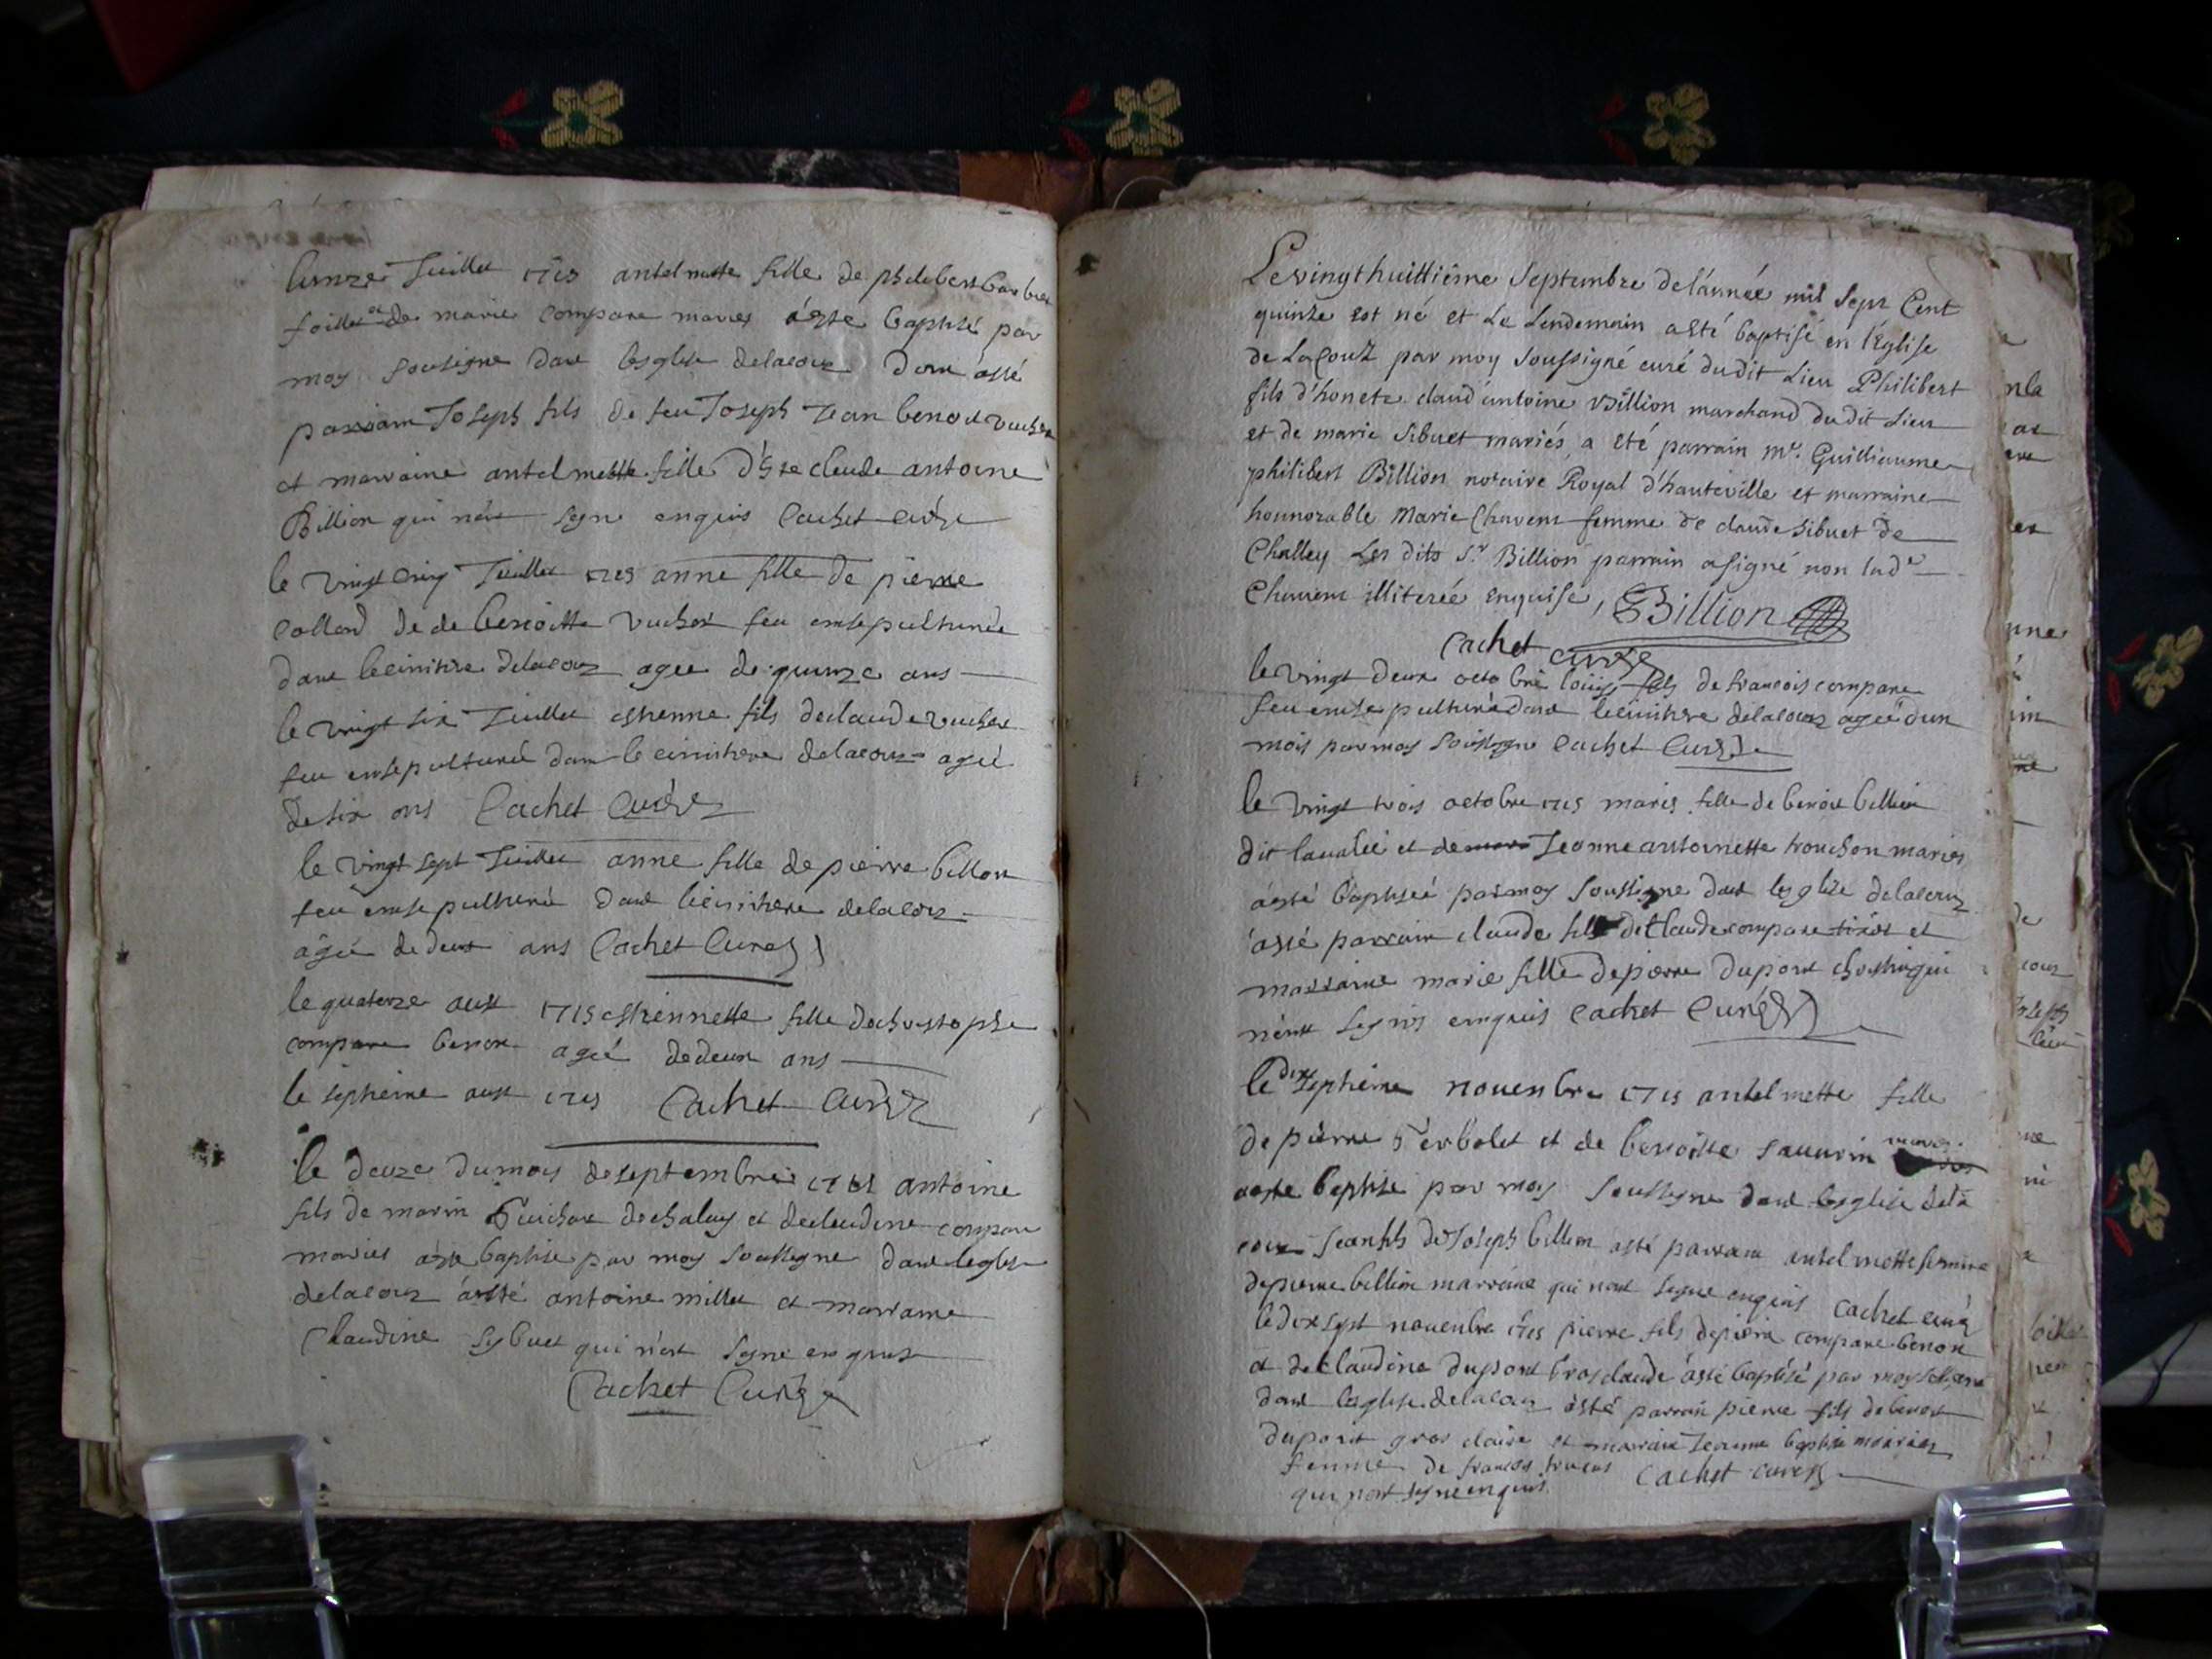 lunze Juillet 1715 antelmette fille de philebert Barbier
foillet et de marie compare maries áeste baptisé par
moy sousigne dans lesglise delacou dont àsté
parrain Joseph fils de feu Joseph Jean benoit vucher
et marraine antelmette fille d'hste claude antoine
Billion qui n'ént signe enquis Cachet curé
le vingt cinq Juillet 1715 anne fille de pierre
Colland de de benoitte vucher feu ensepulturée
dans le cimitiere delacou agee de quinze ans
le vingt six Juillet esthenne fils declaude vucher
feu ensepulturé dans le cimitiere delacou agé
de six ans Cachet Curé
le vingt sept Juillet anne fille de pierre billion
feu ensepulturé dans le cimitiere delacou
agée de deux ans Cachet Curé
le quatorze aust 1715 esthennette fille dechristophe
compare benoit agée dedeux ans
le septieme aust 1715 Cachet Curé
le douze dumois de septembre 1715 antoine
fils de marin Guichard dechaley et declaudine compare
maries aeste baptise par moy soussigne dans leglise
delacou áesté antoine millet et marraine
Claudine sybuet qui n'ént signe enquis
Cachet Curé
Le vingthuittiême Septembre del'année mil Sept Cent
quinze est né et Le Lendemain a esté baptisé en l'Eglise
de Lacouz par moy Soussigné curé du dit Lieu Philibert
fils d'honete claud'antoine Billion marchand du dit Lieu
et de marie Sibuet mariés, a eté parrain mr. Guilliaume
philibert Billion notaire Royal d'hauteville et marraine
honnorable Marie Chavent femme de claude Sibuet de
Challey Les dits Sr. Billion parrain a signé non lade
Chavent illiterée enquise, Billion
Cachet curé
le vingt deux octobre loüis fils de francois compare
feu ensepulturé dans le cimitiere delacou ageé d'un
mois par moy soussigne Cachet Curé
le vingt trois octobre 1715 marie fille de benoit billion
dit lavalie et de Jeanne antoinette trouchon maries
áesté baptiseé par moy soussigne dans lesglise delacou
àsté parrain claude fils de Claude compare et
marraine marie fille de pierre dupont qui
n'ént signé enquis Cachet Curé
le dix septieme novenbre 1715 antelmette fille
de pierre et de benoitte sauvrin maries
aeste baptise par moy soussigne dans lesglise dela
cou Jean fils de Joseph billion asté parrain antelmette femme
depierre billion marraine qui nont signe enquis Cachet curé
le dix sept novenbre 1715 pierre fils depierre compare benoit
et de claudine dupont grosclaude ásté baptisé par moy
dans lesglise delacou ásté parrain pierre fils de benoit
dupont gros claude et marraine Jeanne baptiste
femme de francois Cachet curé
qui nont signe enquis